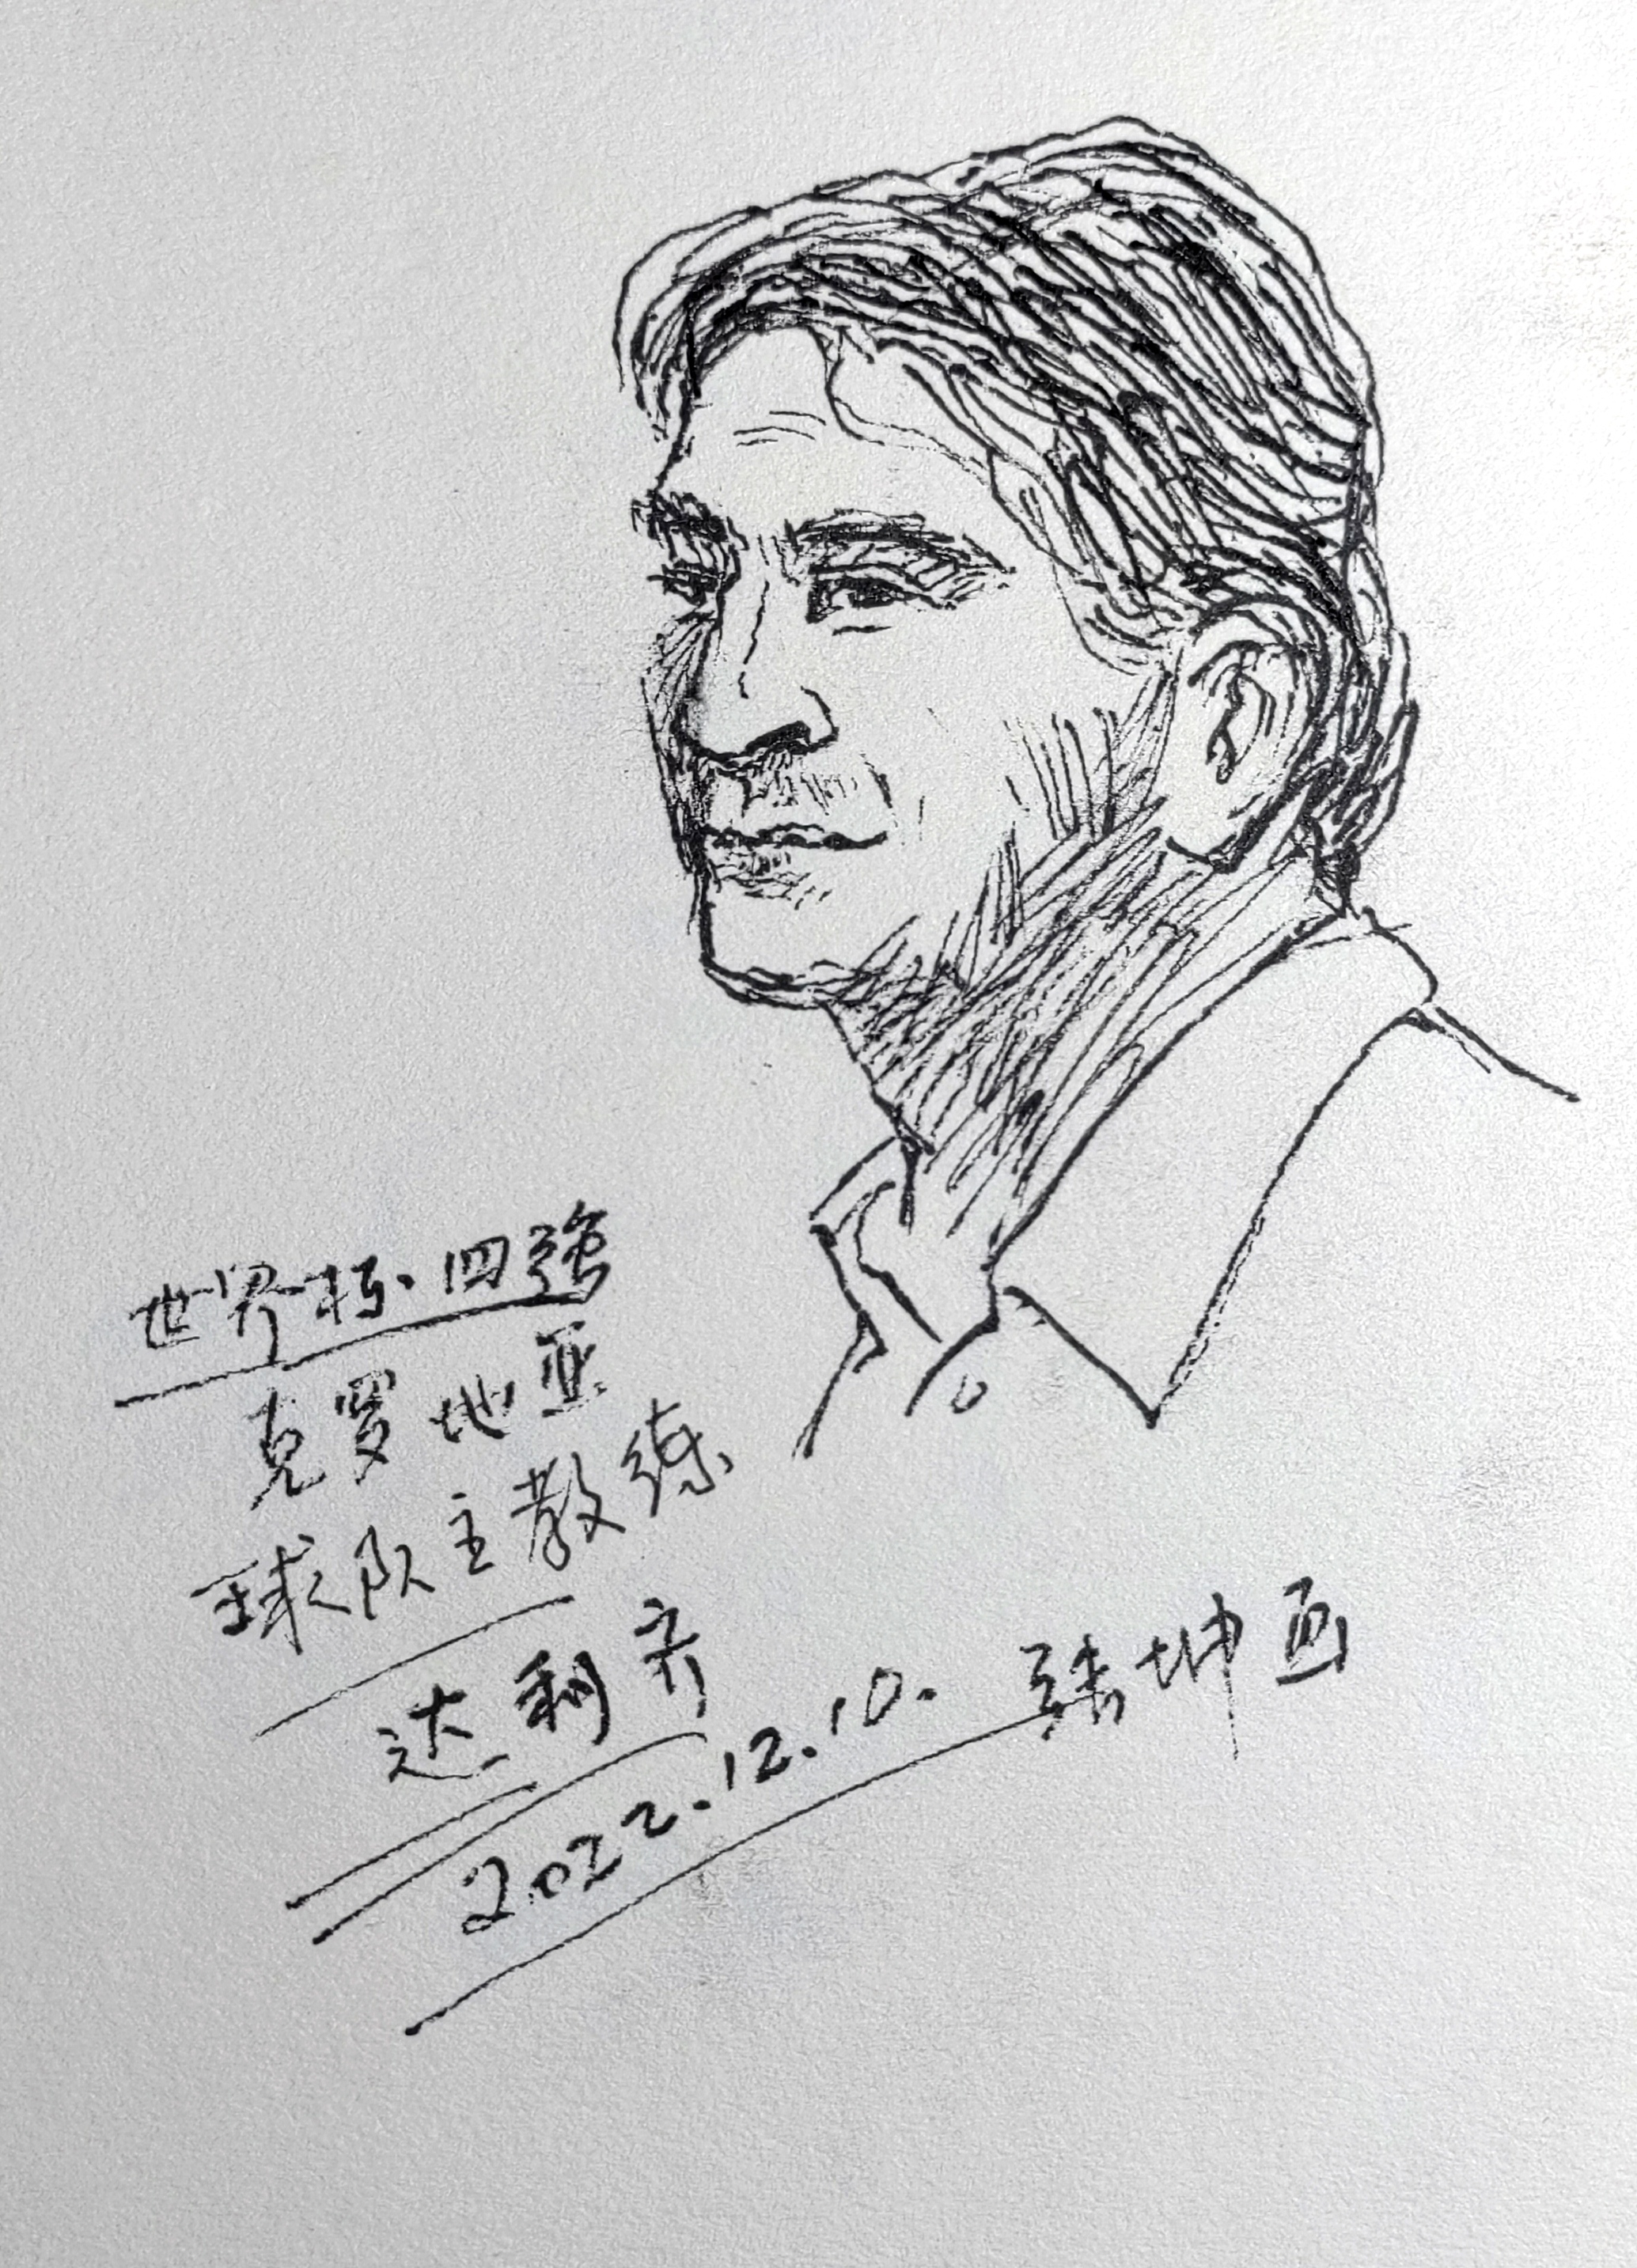 世界杯·四强
克罗地亚
球队主教练
达利齐
2022.12.10. 张坤画